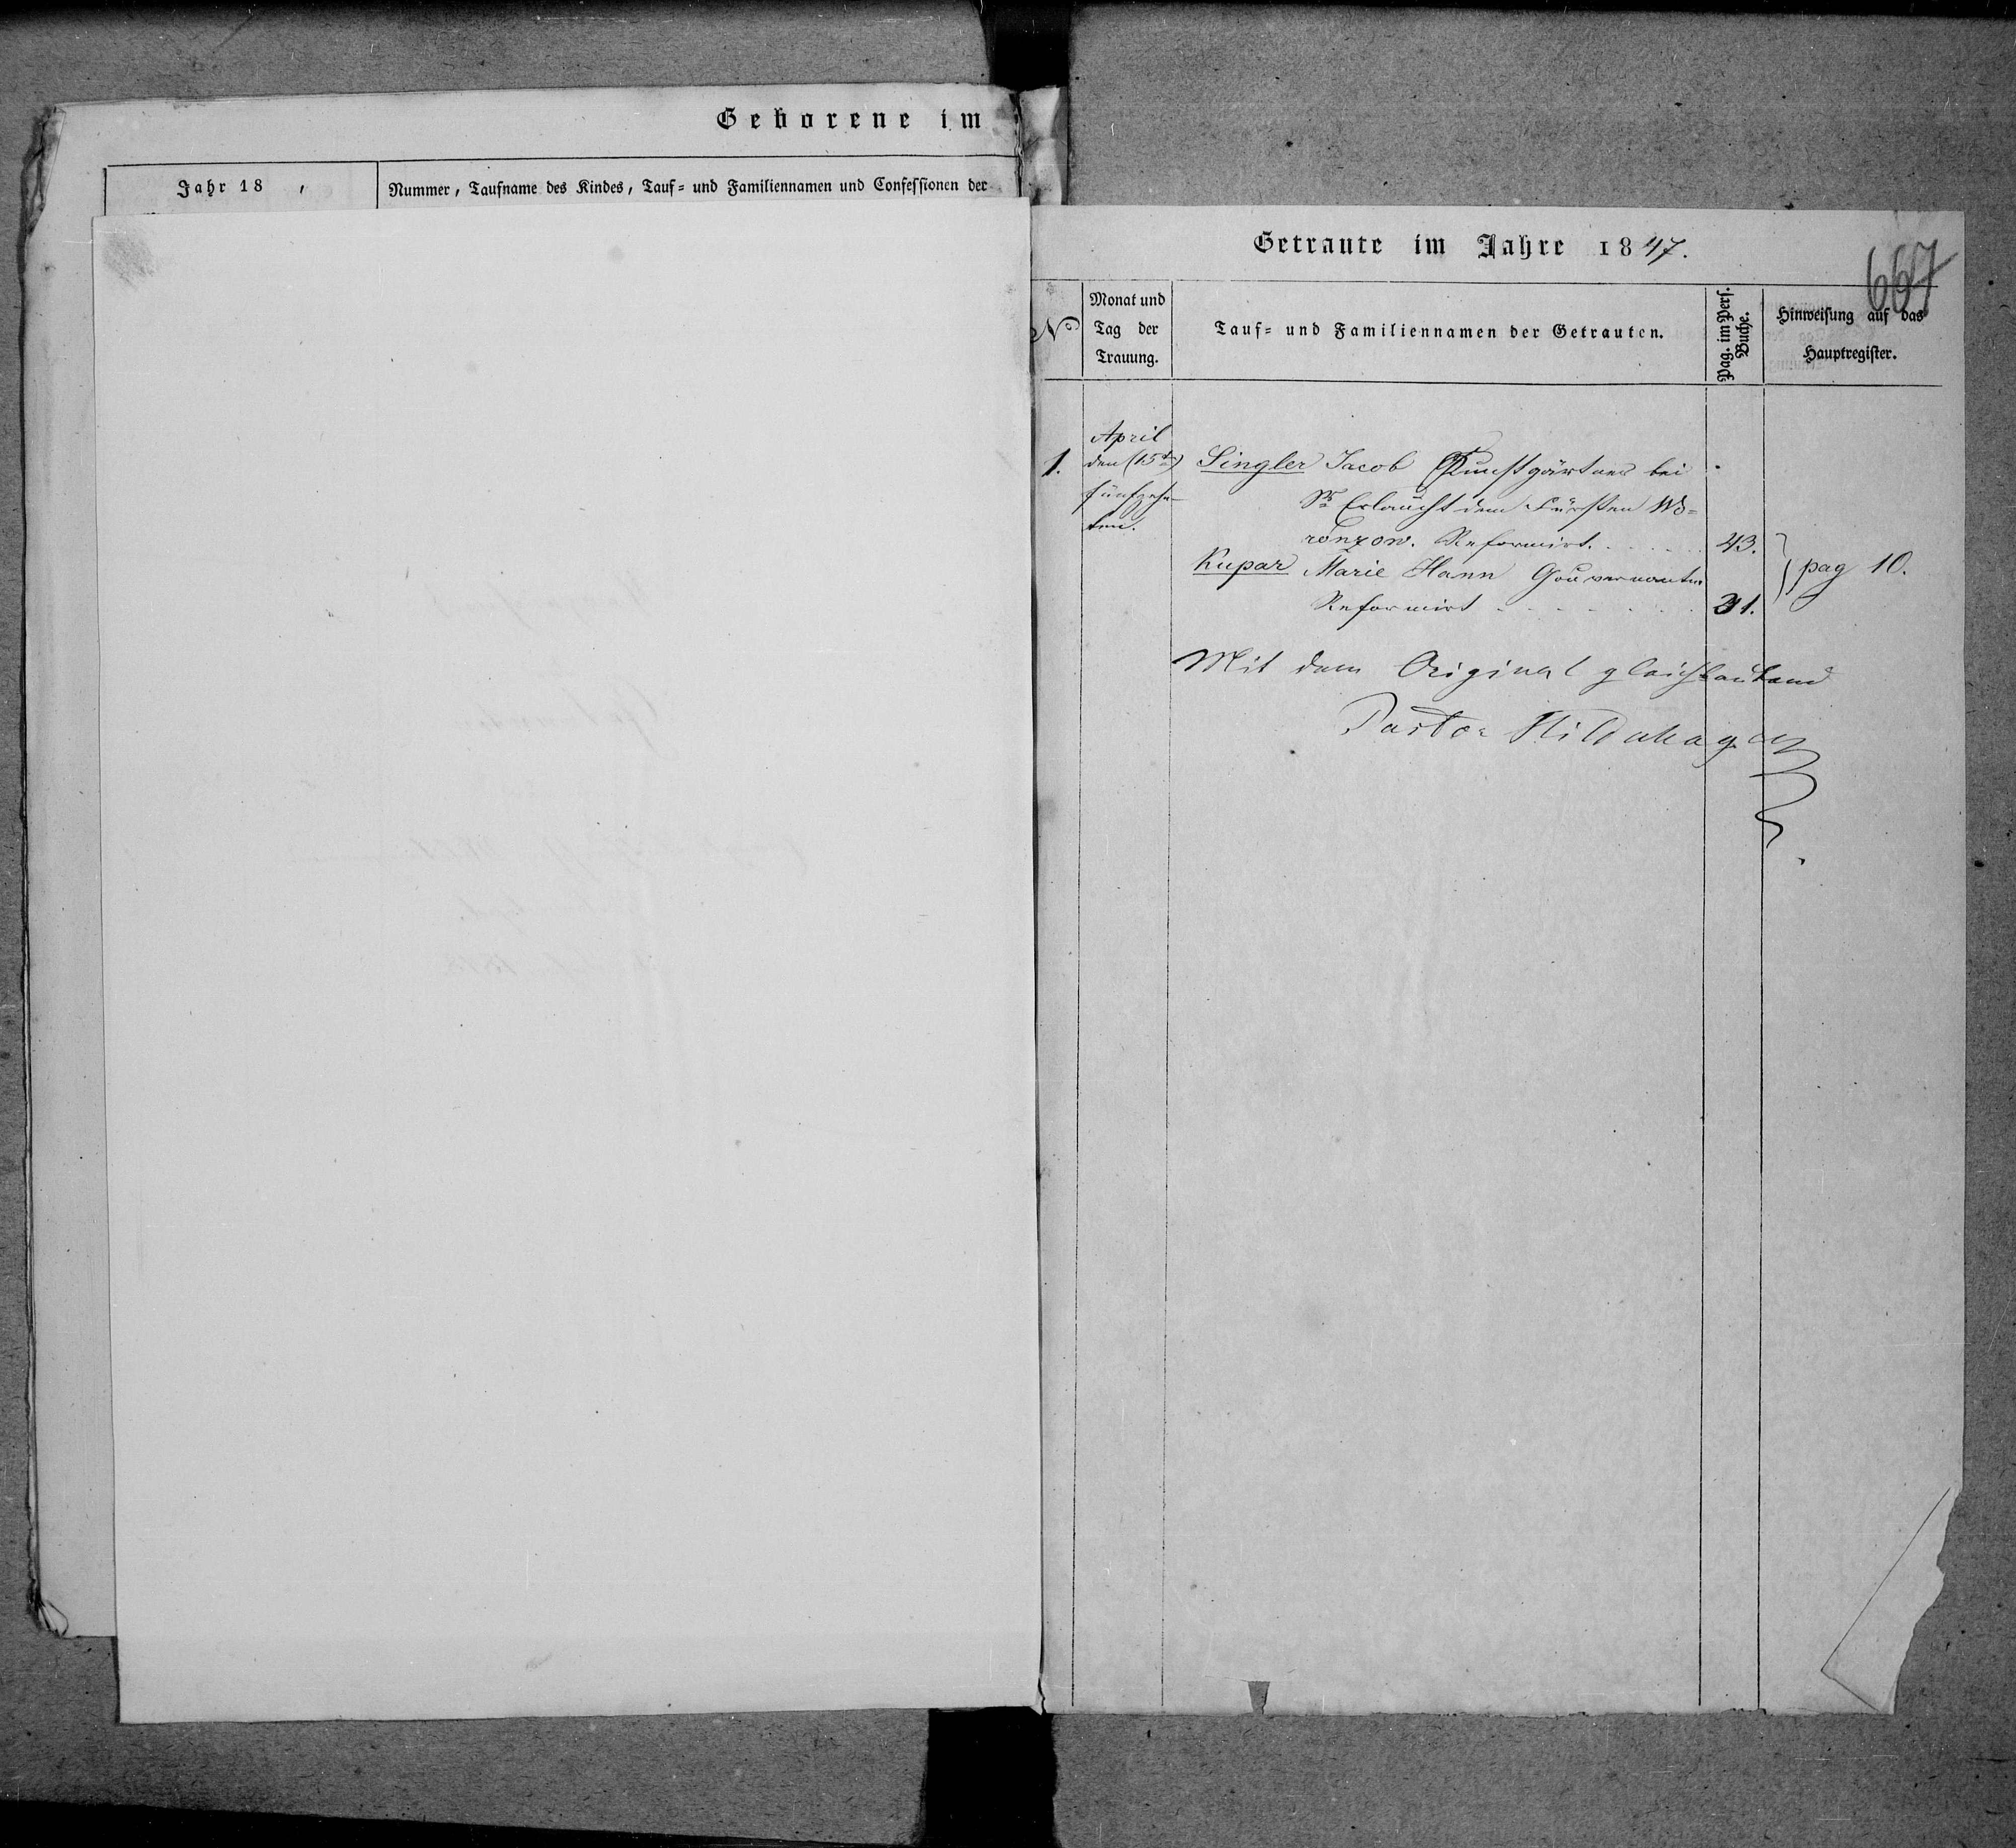 Geborene im
Jahr 18 ,
Nummer, Taufname des Kindes, Tauf- und Familiennamen und Confessionen der
Getraute im Jahre 1847.
667
No
Monat und
Tag der
Trauung.
Tauf- und Familiennamen der Getrauten.
Pag. im Pers.
Buche.
Hinweisung auf das
Hauptregister.
1.
April
den (15ten)
fünfzehn-
ten.
Singler Jacob Kunstgärtner bei
Sr Erlaucht dem Fürsten Wo-
ronzow. Reformirt. . . . . . 43.
Kupar Marie Hann Gouvernantin
Reformirt - - - - - - 31.
pag 10.
Mit dem Original gleichlautend
Pastor Hildenhagen